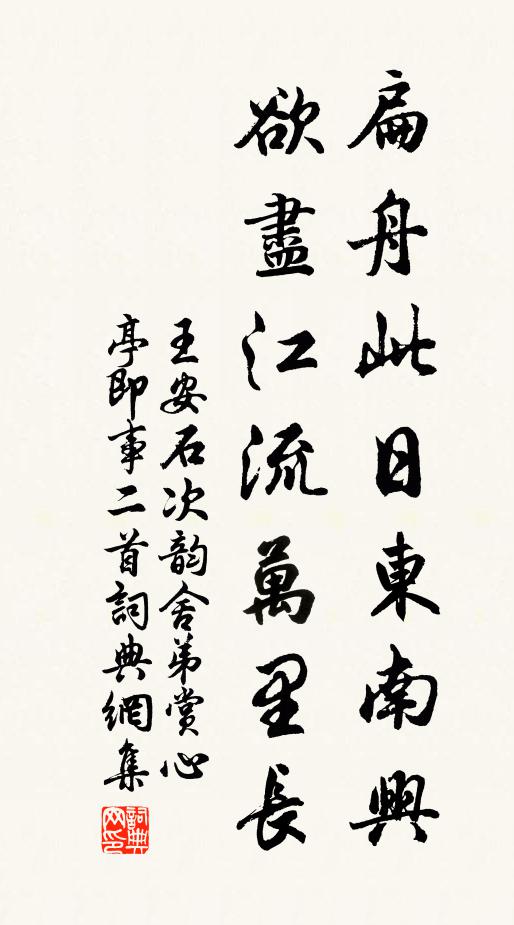 扁舟此日東南興
欲盡江流萬里長
王安石次韵舍弟赏心
亭即事二首詞典網集
詞典
网印